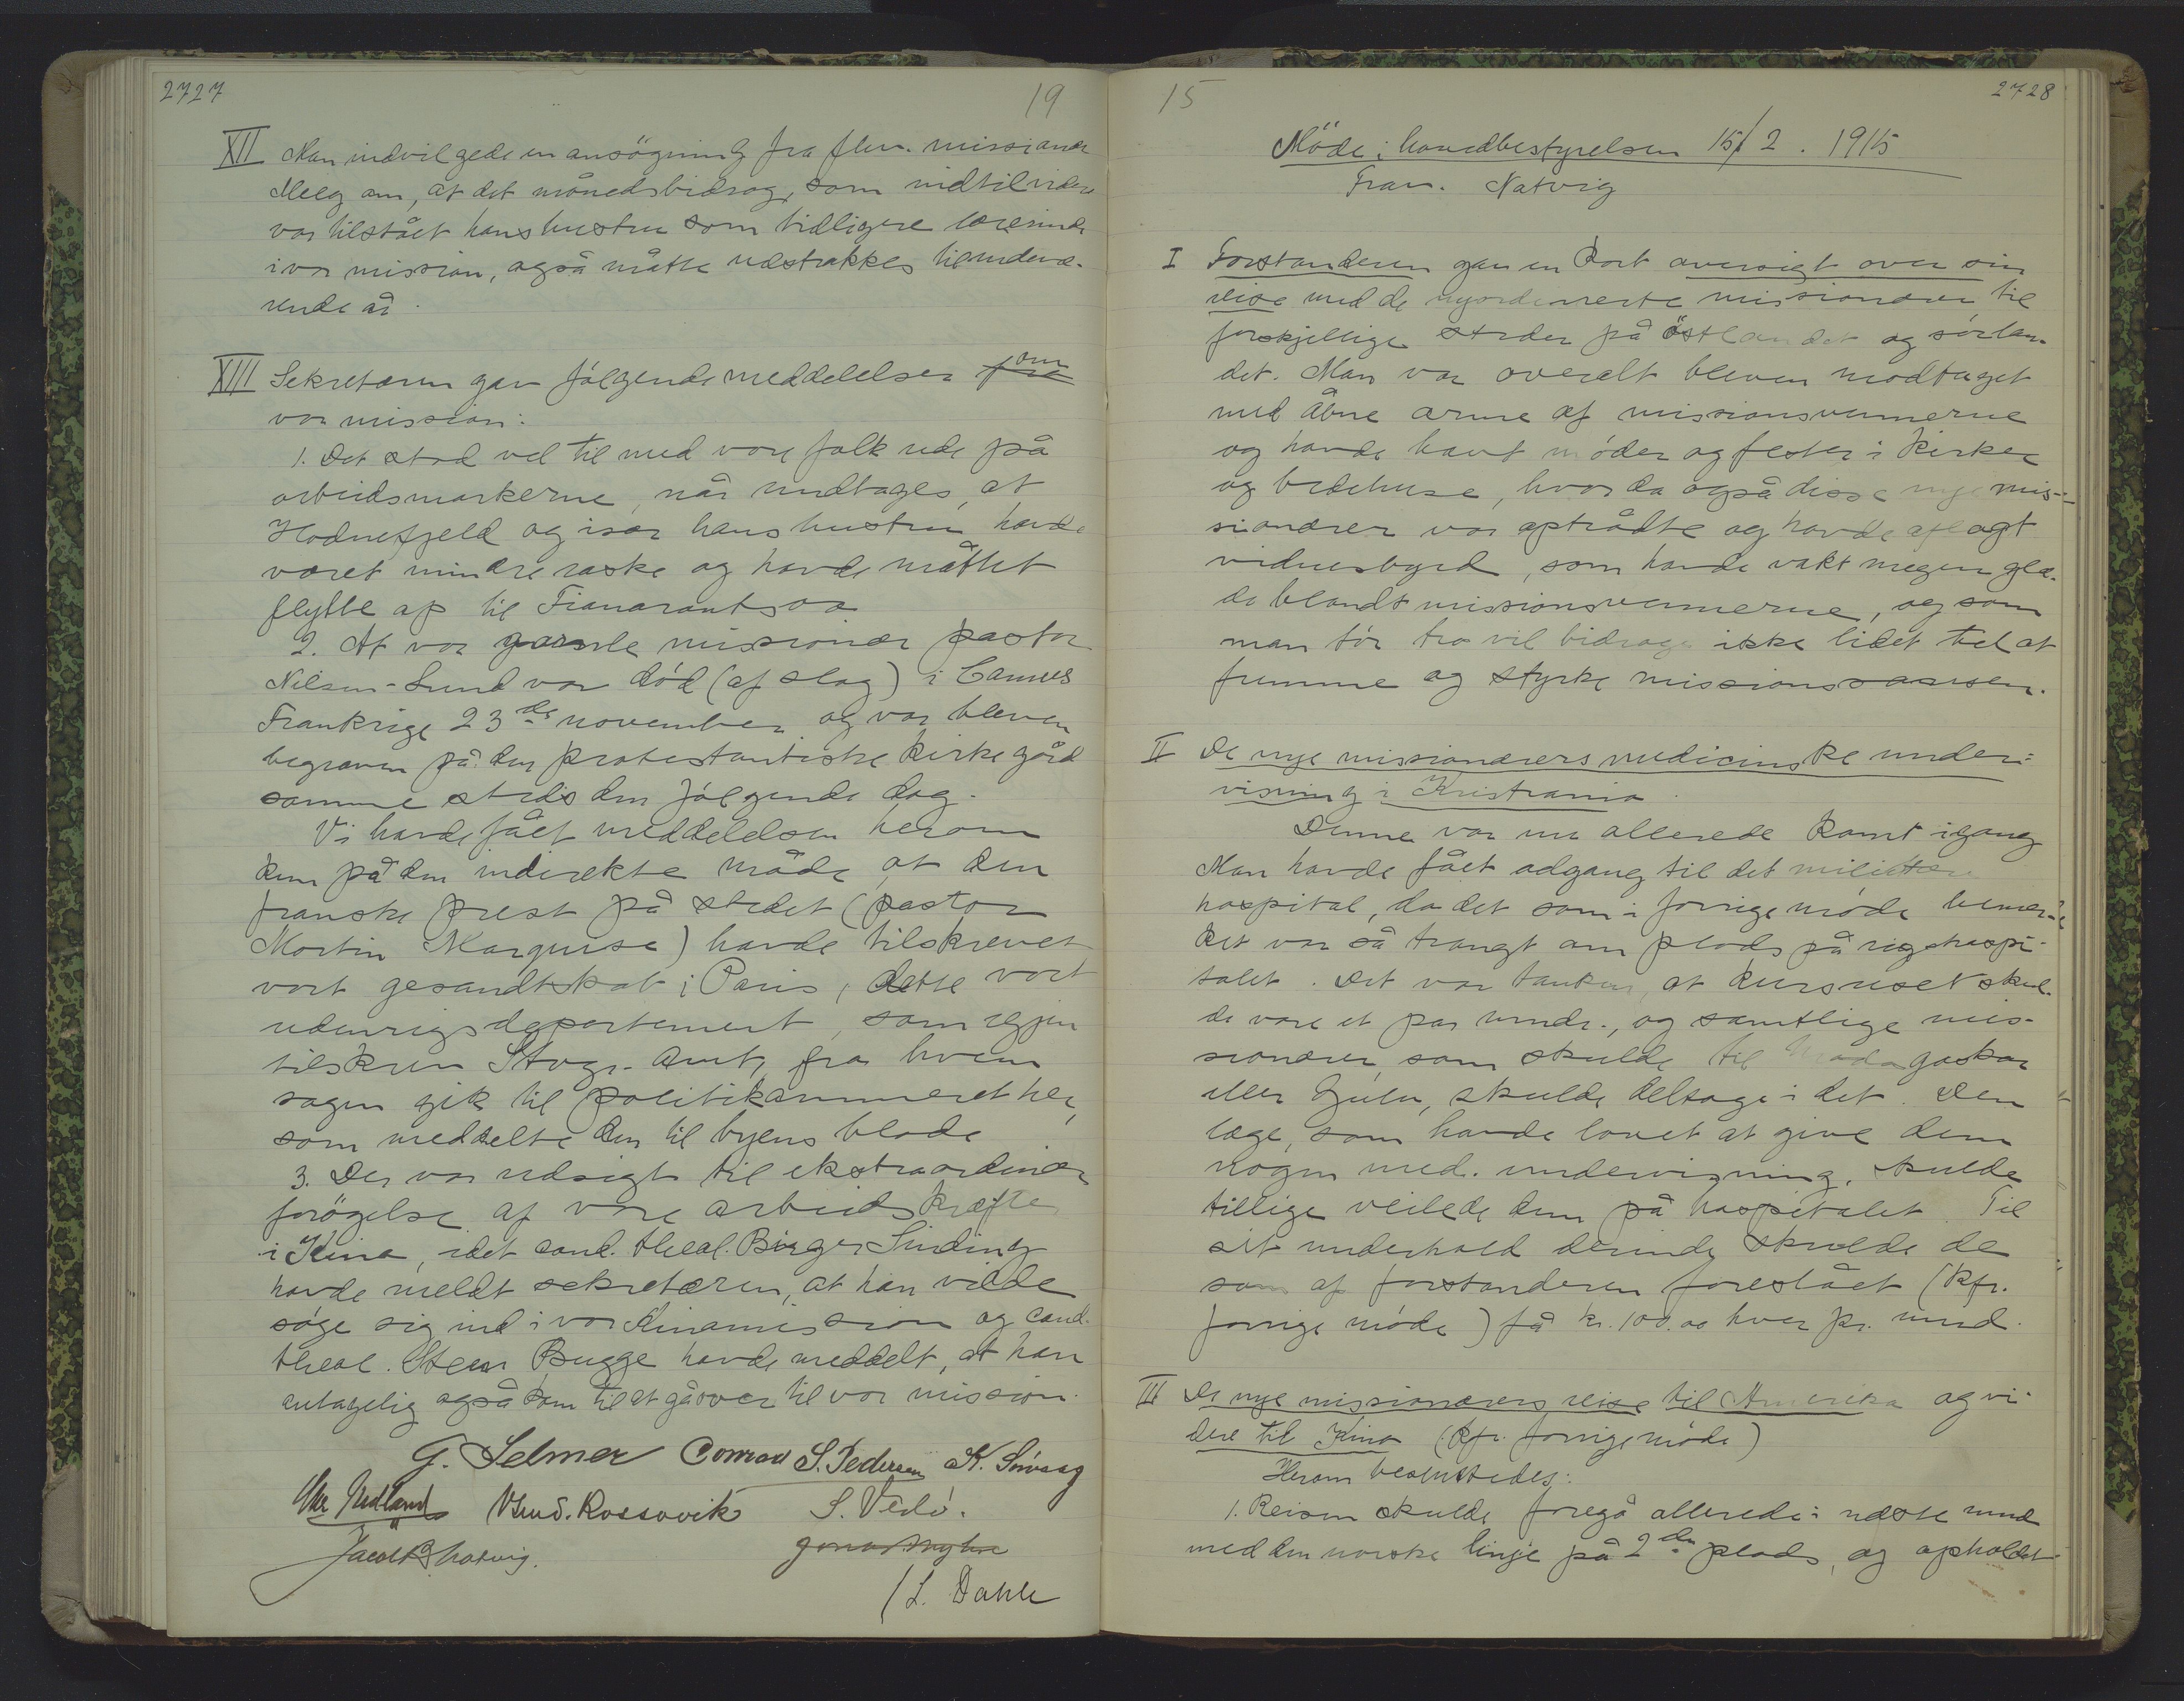 2727
19
XII Man indvilgede en ansögning fra flm. missionær
Meeg om, at det månedsbidrag, som indtilvidere
var tilstået hans hustru som tidligere lærerinde
i vor mission, også måtte udstrækkes til indevæ-
rende år.
XIII Sekretæren gav følgende meddelelser fra om
vor mission:
1. Det stod vel til med vore folk ude på
arbeidsmarkerne, når undtages, at
Hodnefjeld og især hans hustru havde
været mindre raske og havde måttet
flytte op til Fianarantsoa
2. At vor gamle missionær pastor
Nilsen-Lund var död (af slag) i Cannes
Frankrige 23de november og var bleven
begraven på den protestantiske kirkegård
samme steds den følgende dag.
Vi havde fået meddelelsen herom
kun på den indirekte måde, at den
franske prest på stedet (pastor
Mortin Marquise) havde tilskrevet
vort gesandtskab i Paris, dette vort
udenrigsdepartement, som igjen
tilskrev Stvgr. Amt, fra hvem
sagen gik til politikammeret her,
som meddelte den til byens blade
3. Der var udsigt til ekstraordinær
forögelse af vore arbeidskræfter
i Kina, idet cand. theol. Birger Sinding
havde meldt sekretæren, at han vilde
søge sig ind i vor Kinamission og cand.
theol. Sten Bugge havde meddelt, at han
antagelig også kom til at gå over til vor mission.
G. Selmer Conrad S. Pedersen K. Sörvaag
Chr. Nedland Knud. Rossavik S. Vedö.
Jacob Natvig.
/ L. Dahle
15
2728
Möde i hovedbestyrelsen 15/2. 1915
Frav. Natvig
I Forstanderen gav en kort oversigt over sin
reise med de nyordinerte missionærer til
forskjellige steder på östlandet og sörlan-
det. Man var overalt bleven modtaget
med åbne arme af missionsvennerne
og havde havt möder og fester i kirker
og bedehuse, hvor da også disse nye mis-
sionærer var optrådte og havde aflagt
vidnesbyrd, som havde vakt megen glæ-
de blandt missionsvennerne, og som
man tör tro vil bidrage ikke lidet til at
fremme og styrke missionssansen.
II De nye missionærers medicinske under-
visning i Kristiania.
Denne var nu allerede komt igang
Man havde fået adgang til det militære
hospital, da det som i forrige möde bemær-
ket var så trangt om plads på rigshospi-
talet. Det var tanken, at kursuset skul-
de vare et par mndr., og samtlige mis-
sionærer, som skulde til Madagaskar
eller Zulu, skulde deltage i det. Den
læge, som havde lovet at give dem
nogen med. undervisning, skulde
tillige veilede dem på hospitalet. Til
sit underhold derinde skulde de
som af forstanderen foreslået (kfr.
forrige möde) få kr. 100.00 hver pr. mnd.
III De nye missionærers reise til Amerika og vi-
dere til Kina (kfr. forrige möde)
Herom besluttedes:
1. Reisen skulde foregå allerede i næste mnd
med den norske linje på 2den plads, og opholdet